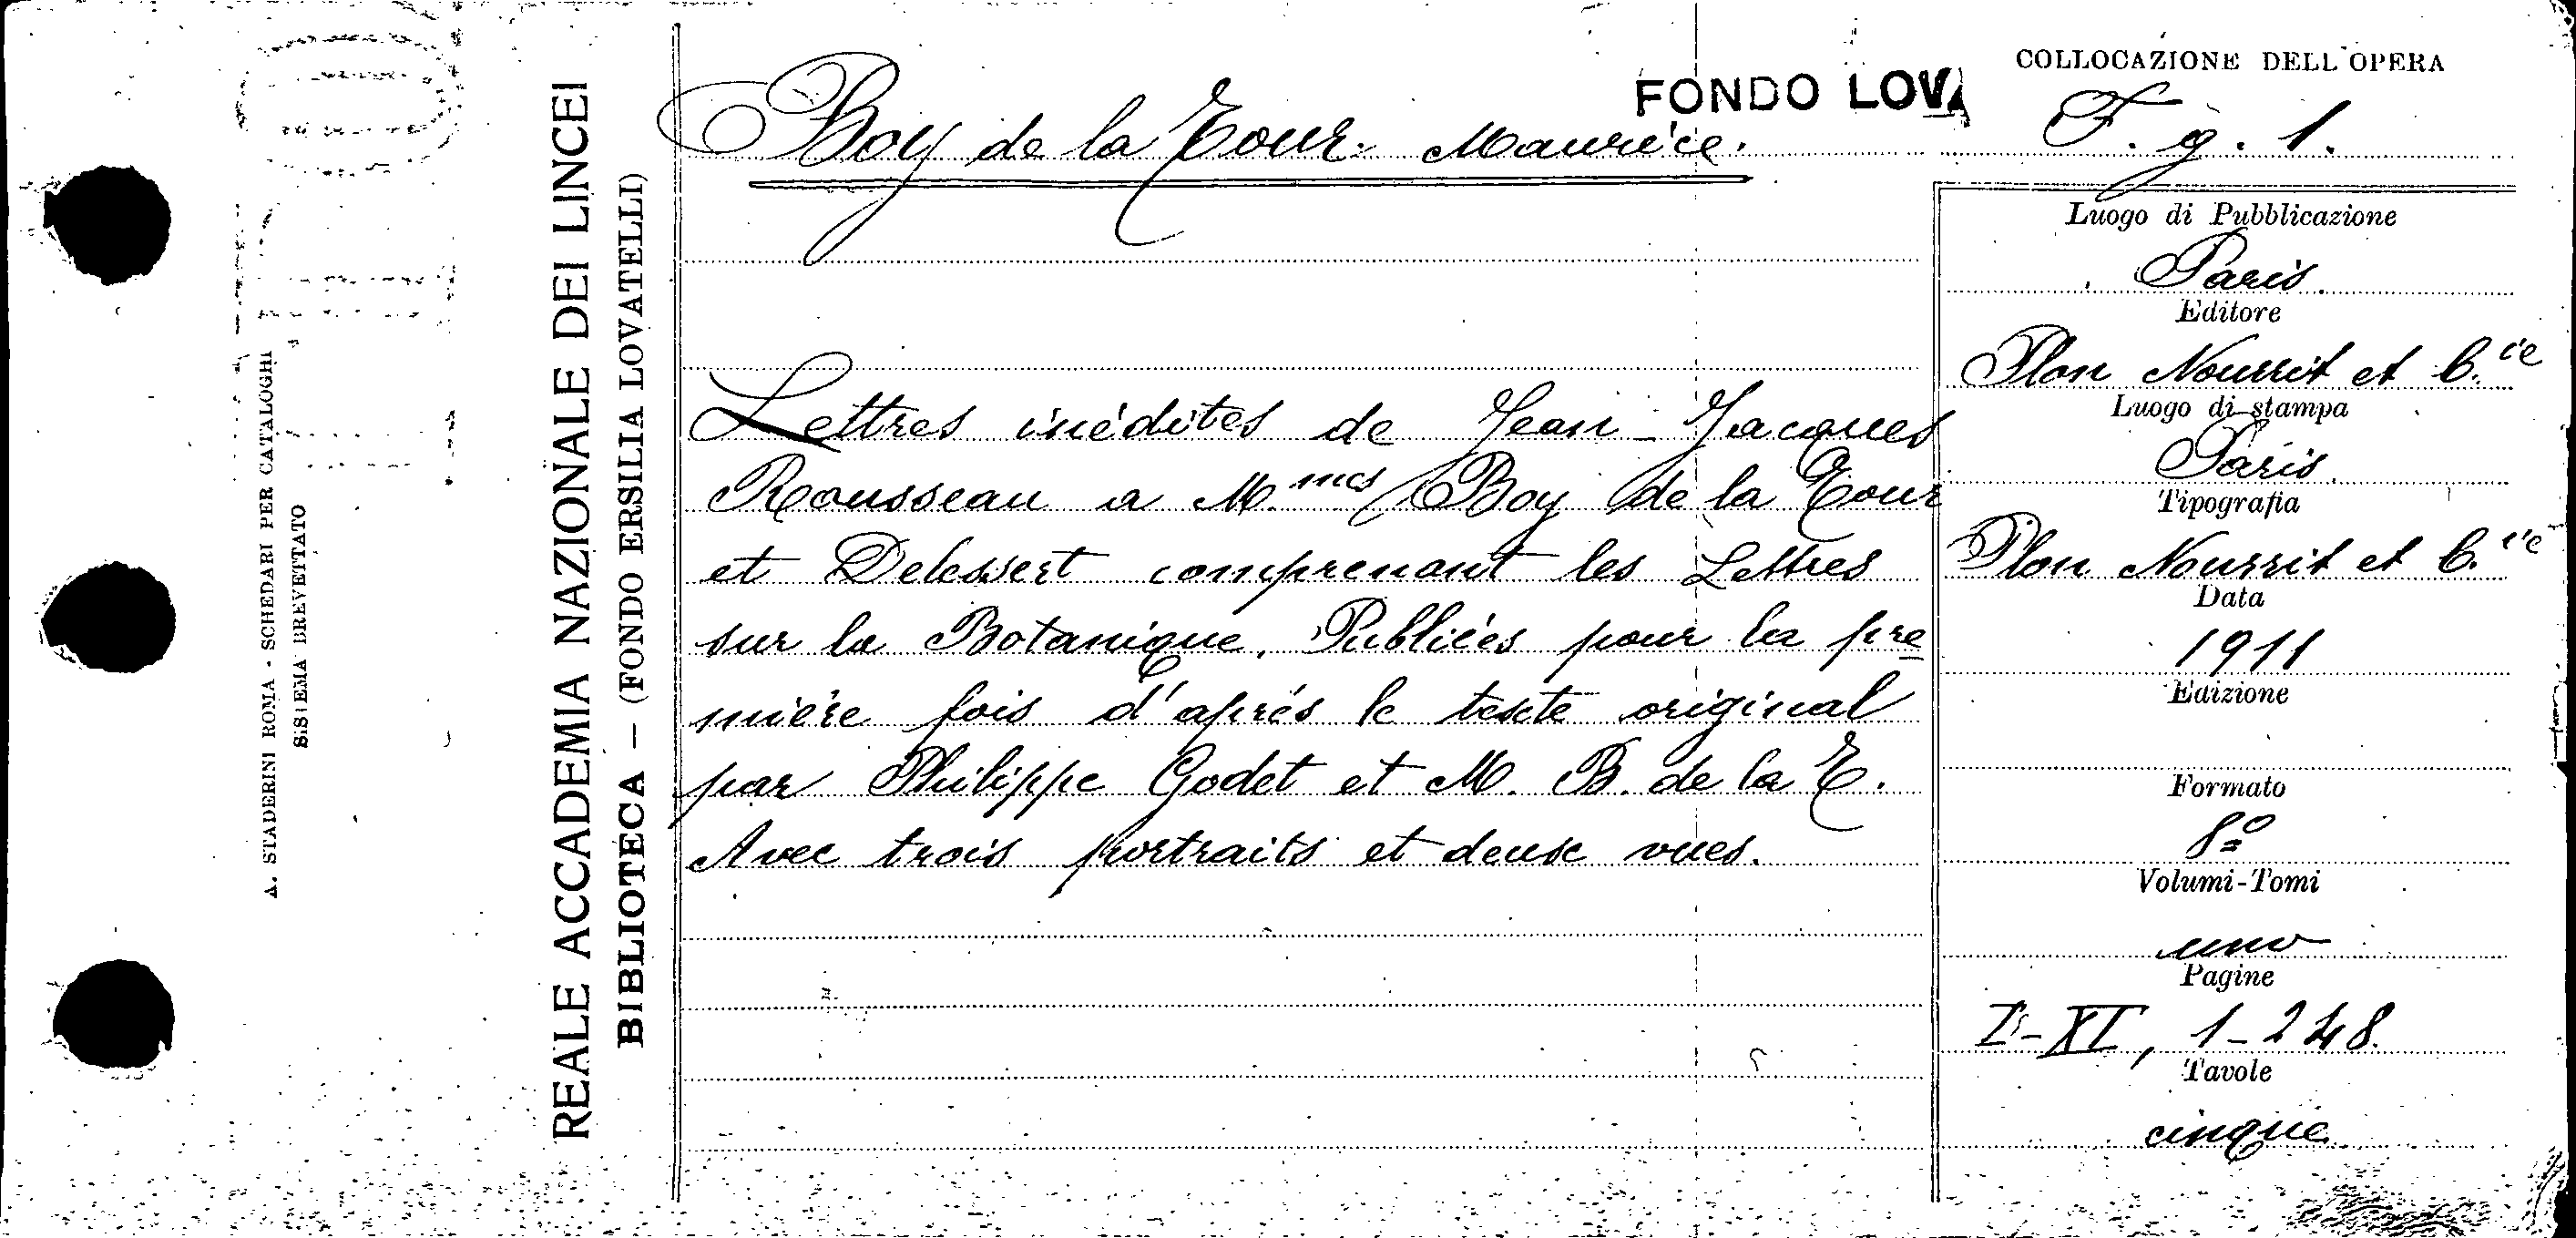 A. STADERINI ROMA - SCHEDARI PER CATALOGHI
SISTEMA BREVETTATO
REALE ACCADEMIA NAZIONALE DEI LINCEI
BIBLIOTECA — (FONDO ERSILIA LOVATELLI)
FONDO LOVA
Boy de la Tour Maurice.
Lettres inédites de Jean-Jacques
Rousseau a M.mes Boy de la Tour
et Delessert comprenant les Lettres
sur la Botanique. Publiées pour la pre
mière fois d'après le texte original
par Philippe Godet et M. B. de la T.
Avec trois portraits et deux vues.
COLLOCAZIONE DELL'OPERA
F. g. 1.
Luogo di Pubblicazione
Paris.
Editore
Plon Nourrit et C.ie
Luogo di stampa
Paris.
Tipografia
Plon Nourrit et C.ie
Data
1911
Edizione
Formato
8º
Volumi-Tomi
uno
Pagine
I-XI, 1-248.
Tavole
cinque